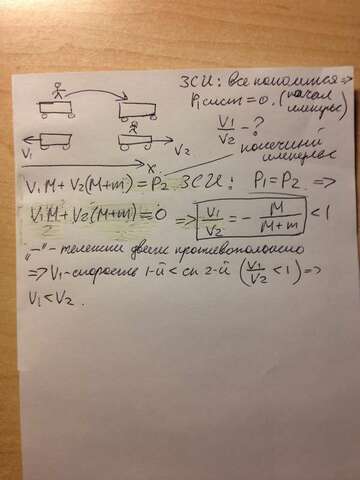 ЗСИ: все покоится =>
P₁сист = 0. (начал импульс)
V₁/V₂ - ?
V₁
V₂
x
конечный импульс
V₁M + V₂(M+m) = P₂. ЗСИ: P₁ = P₂. =>
V₁M + V₂(M+m) = 0 => V₁/V₂ = - M/(M+m) < 1
?
„-" - тележки движ противоположно
=> V₁-скорость 1-й < ск 2-й (V₁/V₂ < 1) =>
V₁ < V₂.